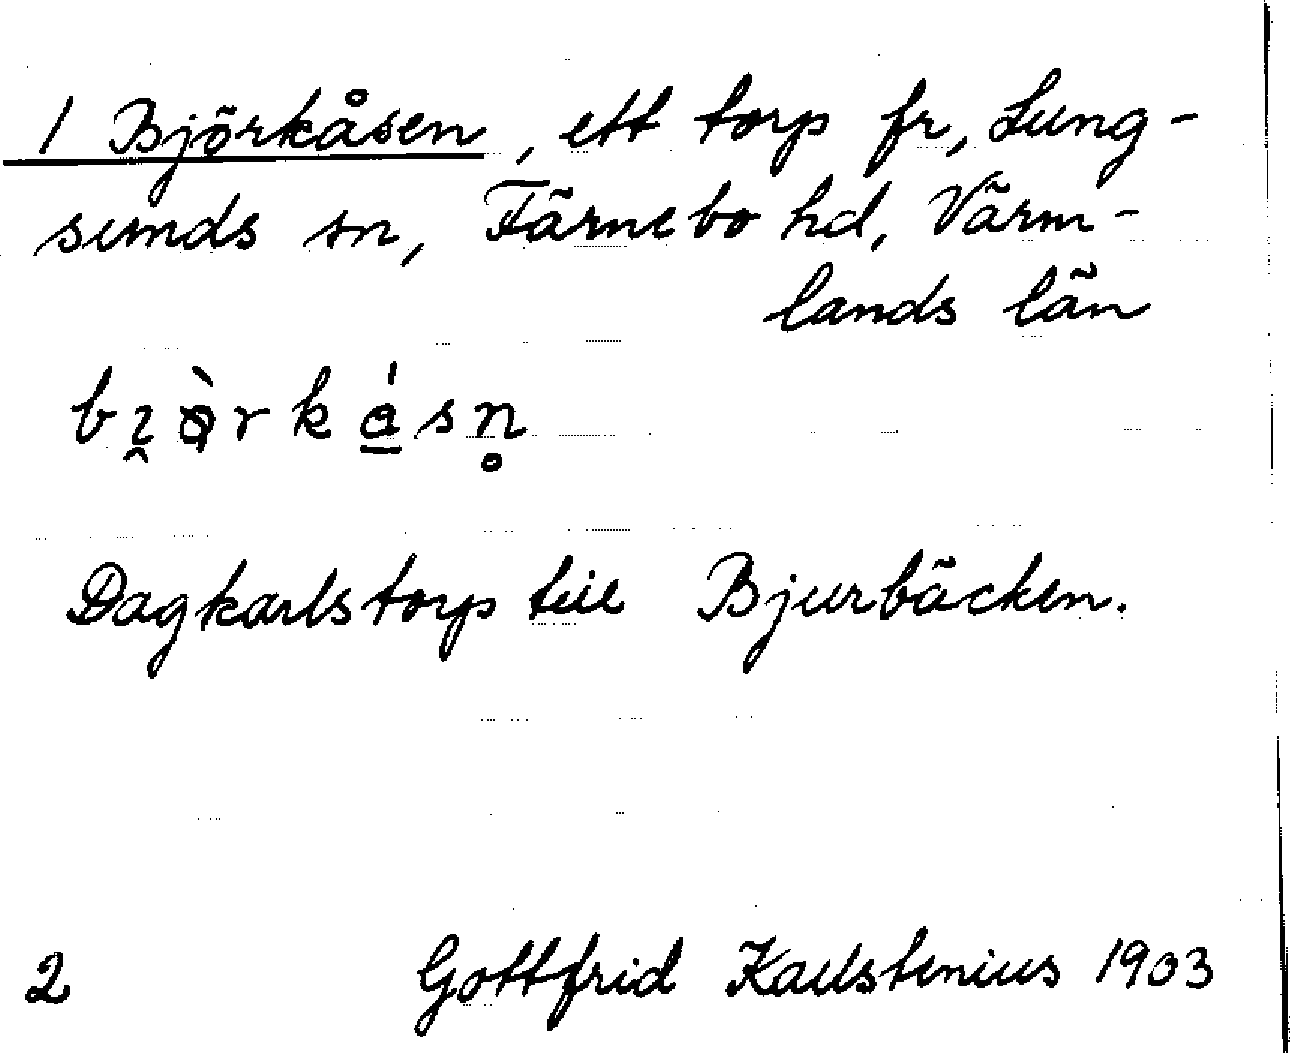 1 Björkåsen, ett torp fr, Lung-
sunds sn, Färnebo hd, Värm-
lands län
Dagkarlstorp till Bjurbäcken.
2 Gottfrid Kallstenius 1903